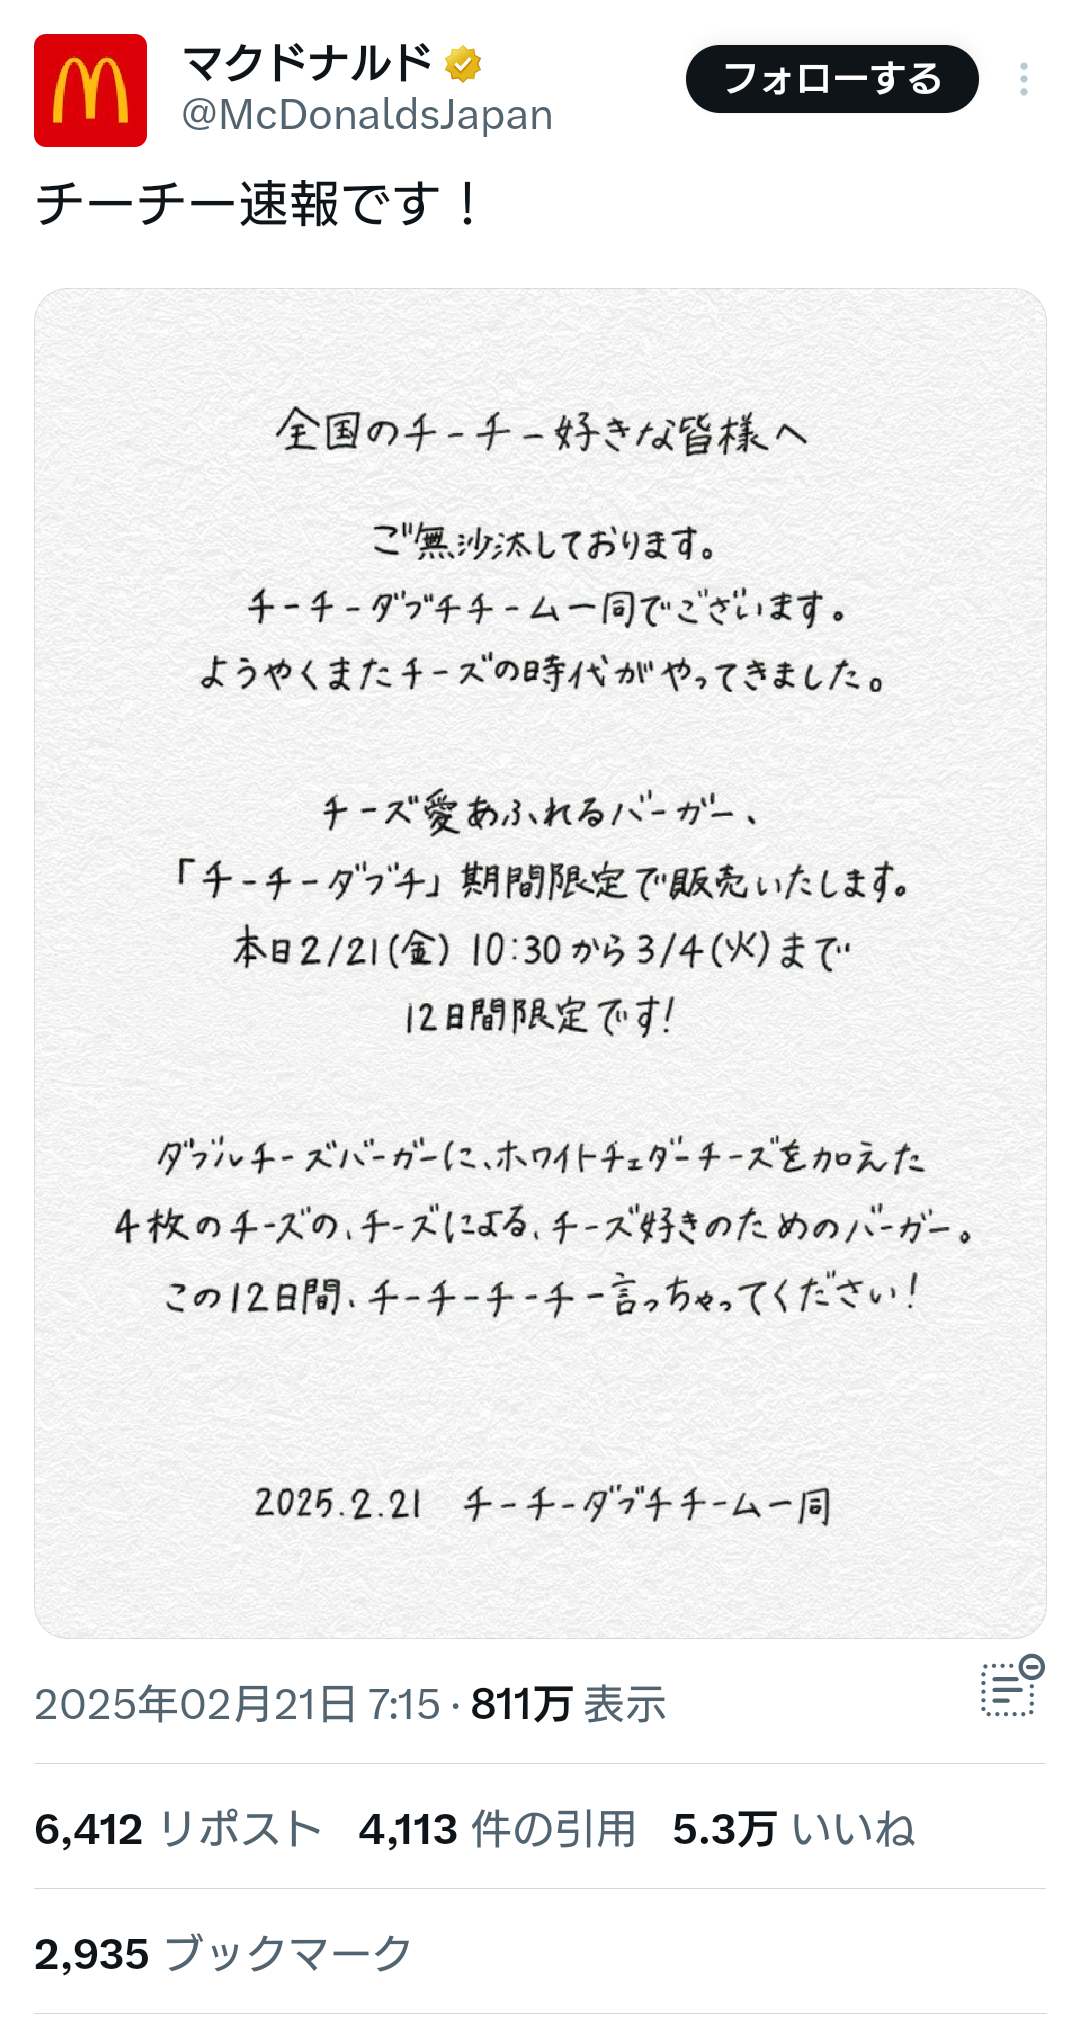 マクドナルド
@McDonaldsJapan
フォローする
チーチー速報です！
全国のチーチー好きな皆様へ
ご無沙汰しております。
チーチーダブチチーム一同でございます。
ようやくまたチーズの時代がやってきました。
チーズ愛あふれるバーガー、
「チーチーダブチ」期間限定で販売いたします。
本日2/21(金) 10:30から3/4(火)まで
12日間限定です!
ダブルチーズバーガーに、ホワイトチェダーチーズを加えた
4枚のチーズの、チーズによる、チーズ好きのためのバーガー。
この12日間、チーチーチーチー言っちゃってください!
2025.2.21 チーチーダブチチーム一同
2025年02月21日 7:15 · 811万 表示
6,412 リポスト 4,113 件の引用 5.3万 いいね
2,935 ブックマーク